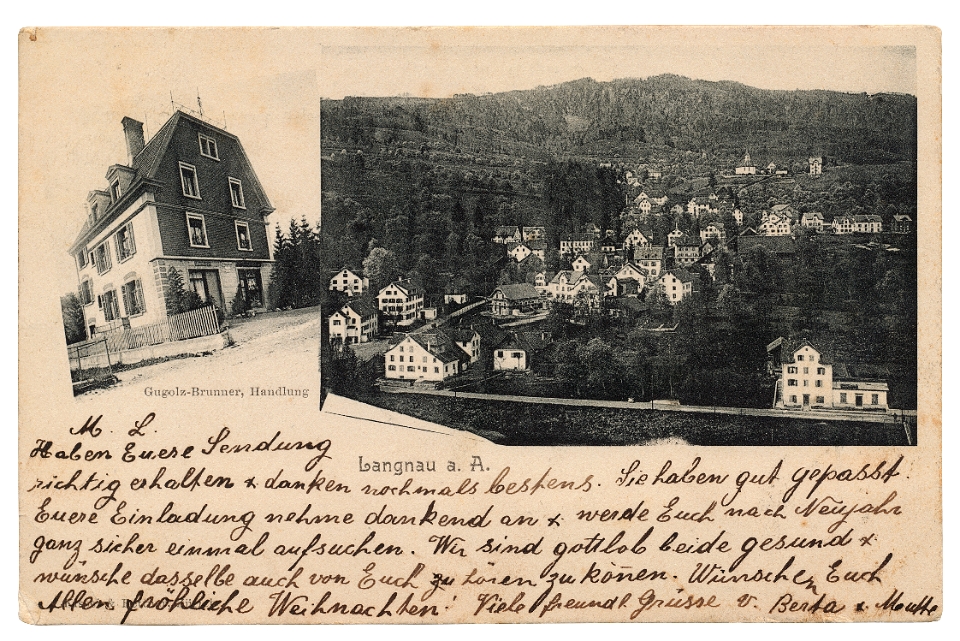 Gugolz-Brunner, Handlung
Langnau a. A.
M. L.
Haben Euere Sendung
richtig erhalten & danken nochmals bestens. Sie haben gut gepasst.
Euere Einladung nehme dankend an & werde Euch nach Neujahr
ganz sicher einmal aufsuchen. Wir sind gottlob beide gesund &
wünsche dasselbe auch von Euch zu hören zu könen. Wünsche Euch
Allen fröhliche Weihnachten! Viele freundl. Grüsse v. Berta &